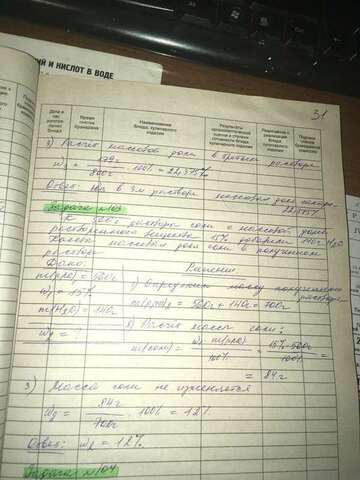 ИЙ И КИСЛОТ В ВОДЕ
31
Дата и час изготовления блюда
Время снятия бракеража
Наименование блюда, кулинарного изделия
Результаты органолептической оценки и степени готовности блюда, кулинарного изделия
Разрешение к реализации блюда, кулинарного изделия
Подписи членов бракеражной комиссии
3) Расчет массовой доли в третьем растворе
w₃ = 179г / 800г · 100% = 22,375%
Ответ: в 3м растворе массовая доля
22,375%
Задача №103
К раствору соли с массовой долей
растворенного вещества 15% добавили 140г H₂O
Какова массовая доля соли в полученном
растворе
Дано: Решение:
m(р-ра)₁ = 560г
1) определим массу полученного раствора
w₁ = 15%
m(р-ра)₂ = 560г + 140г = 700г
m(H₂O) = 140г
2) Расчет массы соли:
w₂ = ?
m(соли) = w₁ · m(р-ра) / 100% = 15% · 560г / 100% =
= 84г
3) Масса соли не изменяется
w₂ = 84г / 700г · 100% = 12%
Ответ: w₂ = 12%
Задача №104